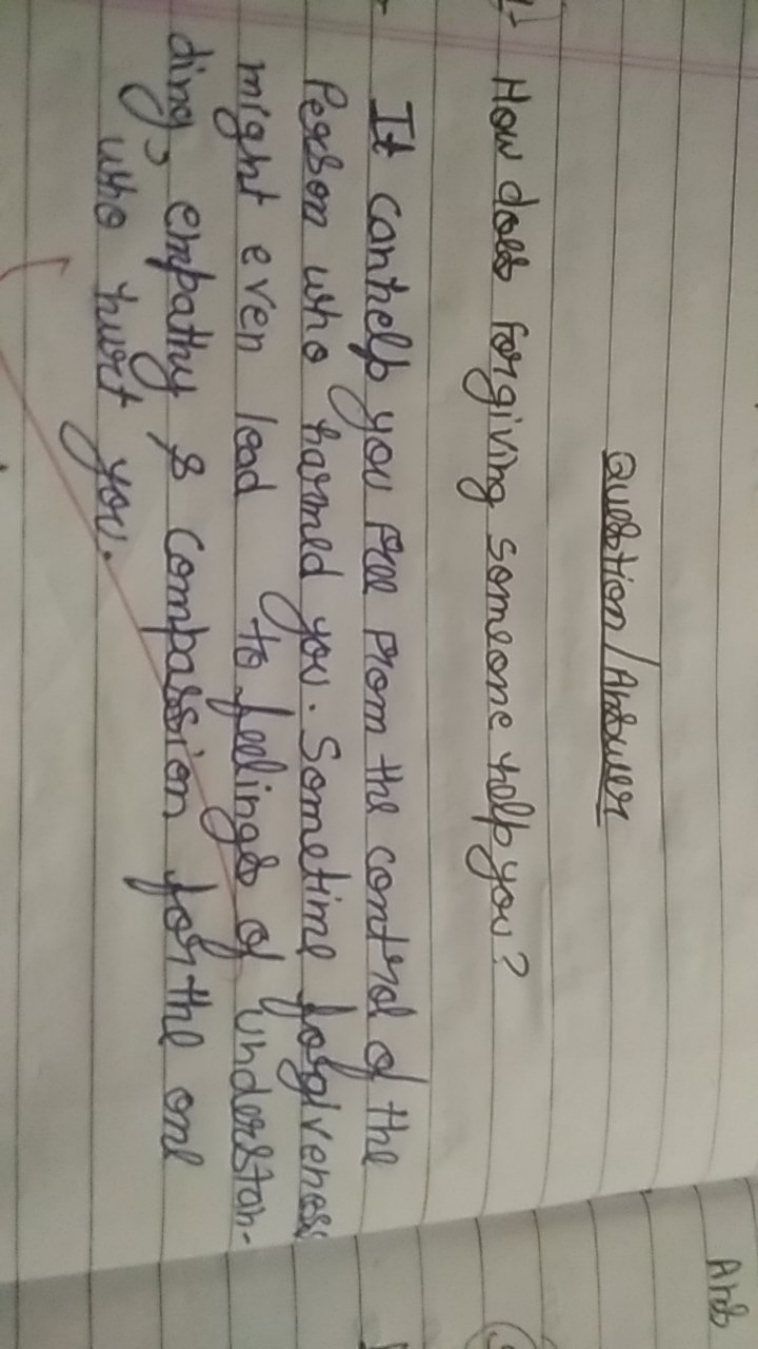 Question/Answer
How does forgiving someone help you?
It can help you free from the control of the
Person who harmed you. Sometime forgiveness
might even lead to feelings of understan-
ding, empathy & compassion for the one
who hurt you.
Ans